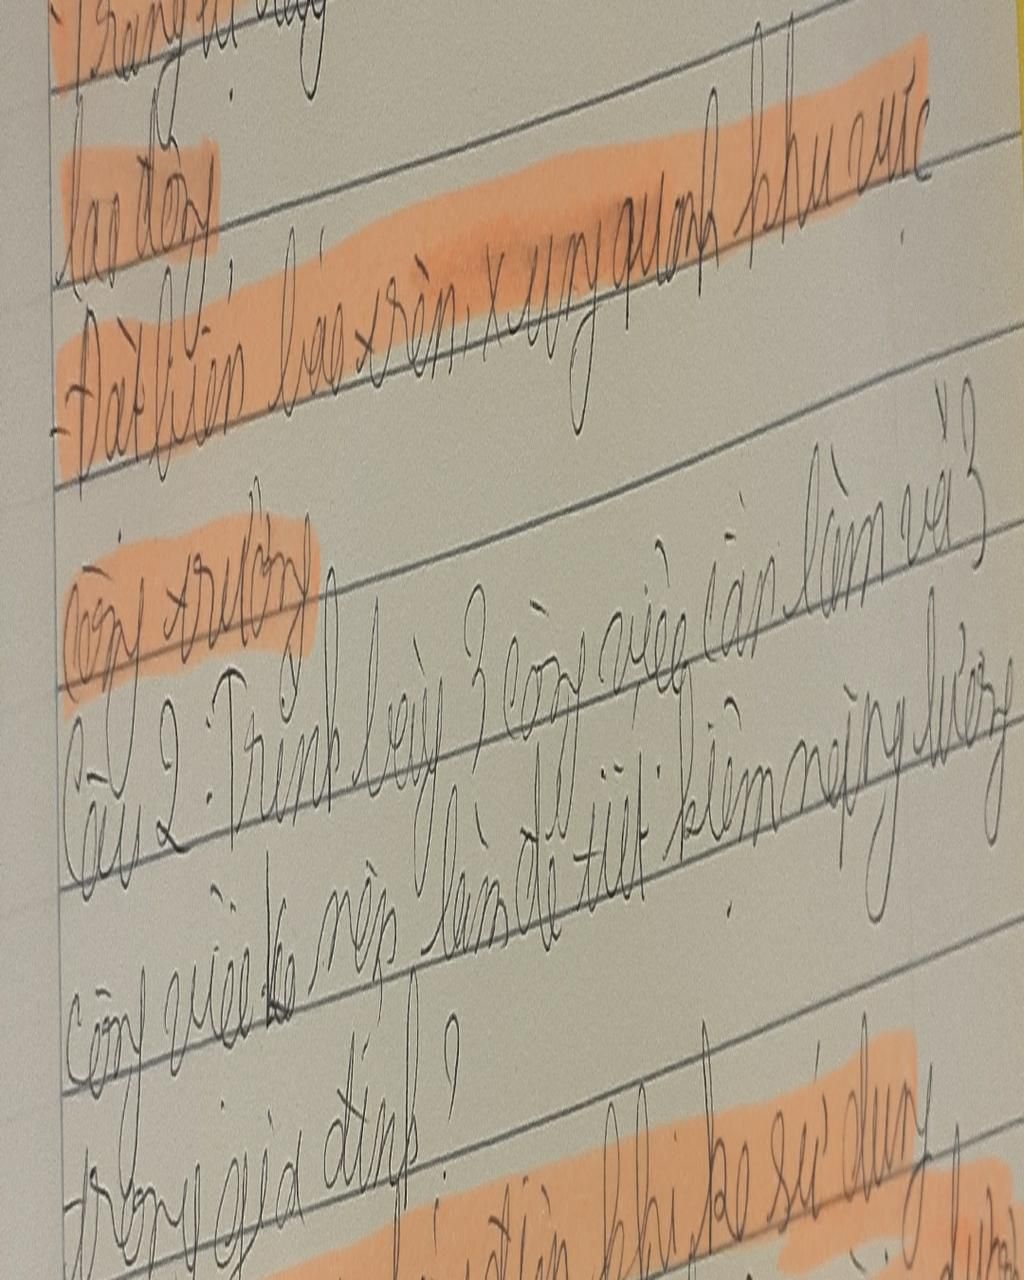 Trang bị
lao động
- Đặt biển báo trên, xung quanh khu vực
công trường
Câu 2: Trình bày 3 công việc cần làm và 3
công việc ko nên làm để tiết kiệm năng lượng
trong gia đình?
điện khi ko sử dụng